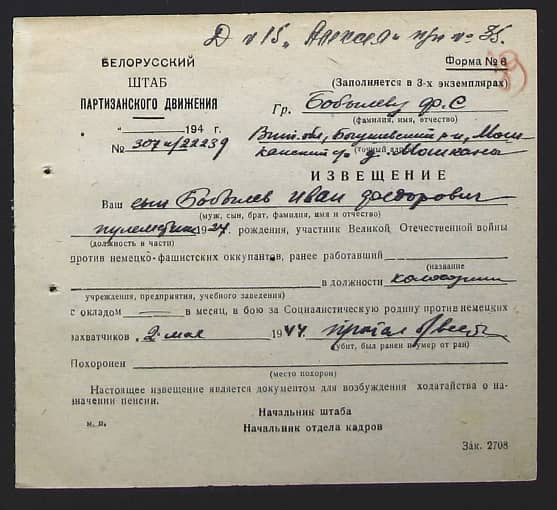 Д п 15 „Алексея" пр. п. 35.
39
БЕЛОРУССКИЙ
ШТАБ
ПАРТИЗАНСКОГО ДВИЖЕНИЯ
" " 194 г.
№ 307н/22239
Форма № 6
(Заполняется в 3-х экземплярах)
Гр. Бобылеву Ф. С
(фамилия, имя, отчество)
Вит. обл, Богушевский р-н, Мош
(точный адрес)
канский с/с д. Мошканы
ИЗВЕЩЕНИЕ
Ваш сын Бобылев Иван Федорович
(муж, сын, брат, фамилия, имя и отчество)
пулеметчик 1924 рождения, участник Великой Отечественной войны
(должность в части)
против немецко-фашистских оккупантов, ранее работавший
(название
в должности колхозник
учреждения, предприятия, учебного заведения)
с окладом в месяц, в бою за Социалистическую родину против немецких
захватчиков 2 мая 1944 пропал б/вести
(убит, был ранен и умер от ран)
Похоронен
(место похорон)
Настоящее извещение является документом для возбуждения ходатайства о на-
значении пенсии.
Начальник штаба
м. п.
Начальник отдела кадров
Зак. 2708